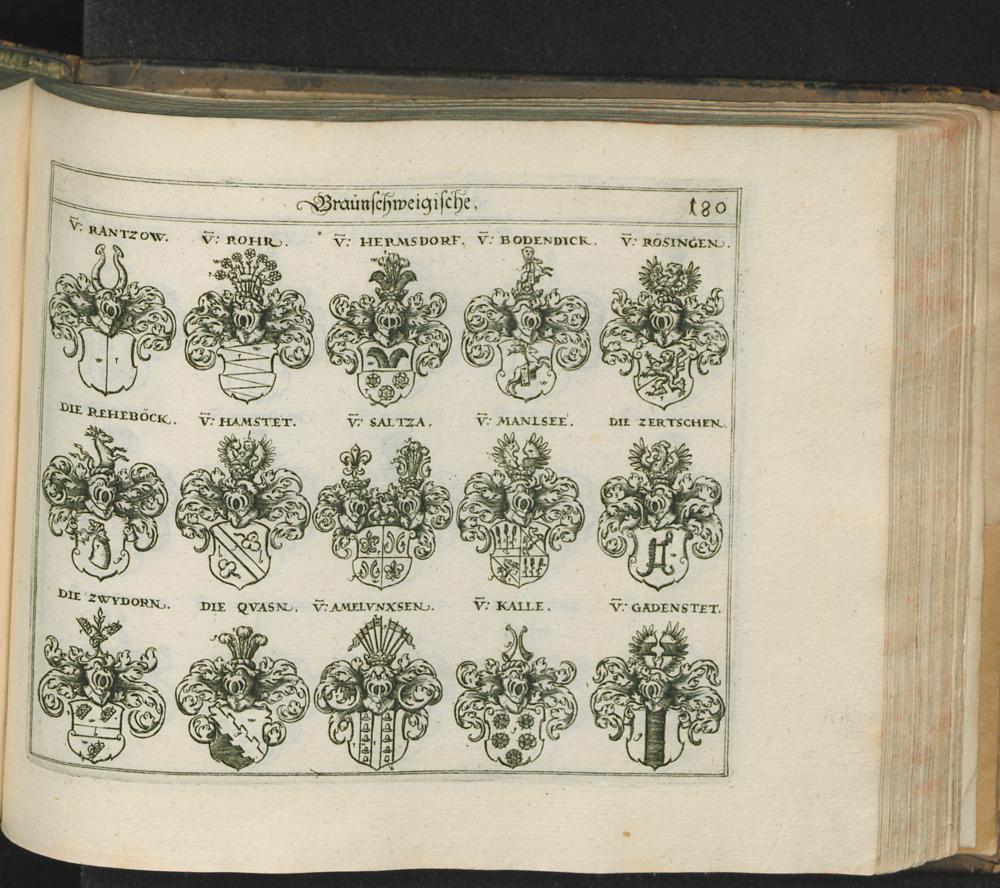 Braunschweigische. 180
V: RANTZOW. V: ROHR. V: HERMSDORF. V: BODENDICK. V: RÖSINGEN.
DIE REHEBÖCK. V: HAMSTET. V: SALTZA. V: MANLSEE. DIE ZERTSCHEN.
DIE ZWYDORN. DIE QVASN. V: AMELVNXSEN. V: KALLE. V: GADENSTET.